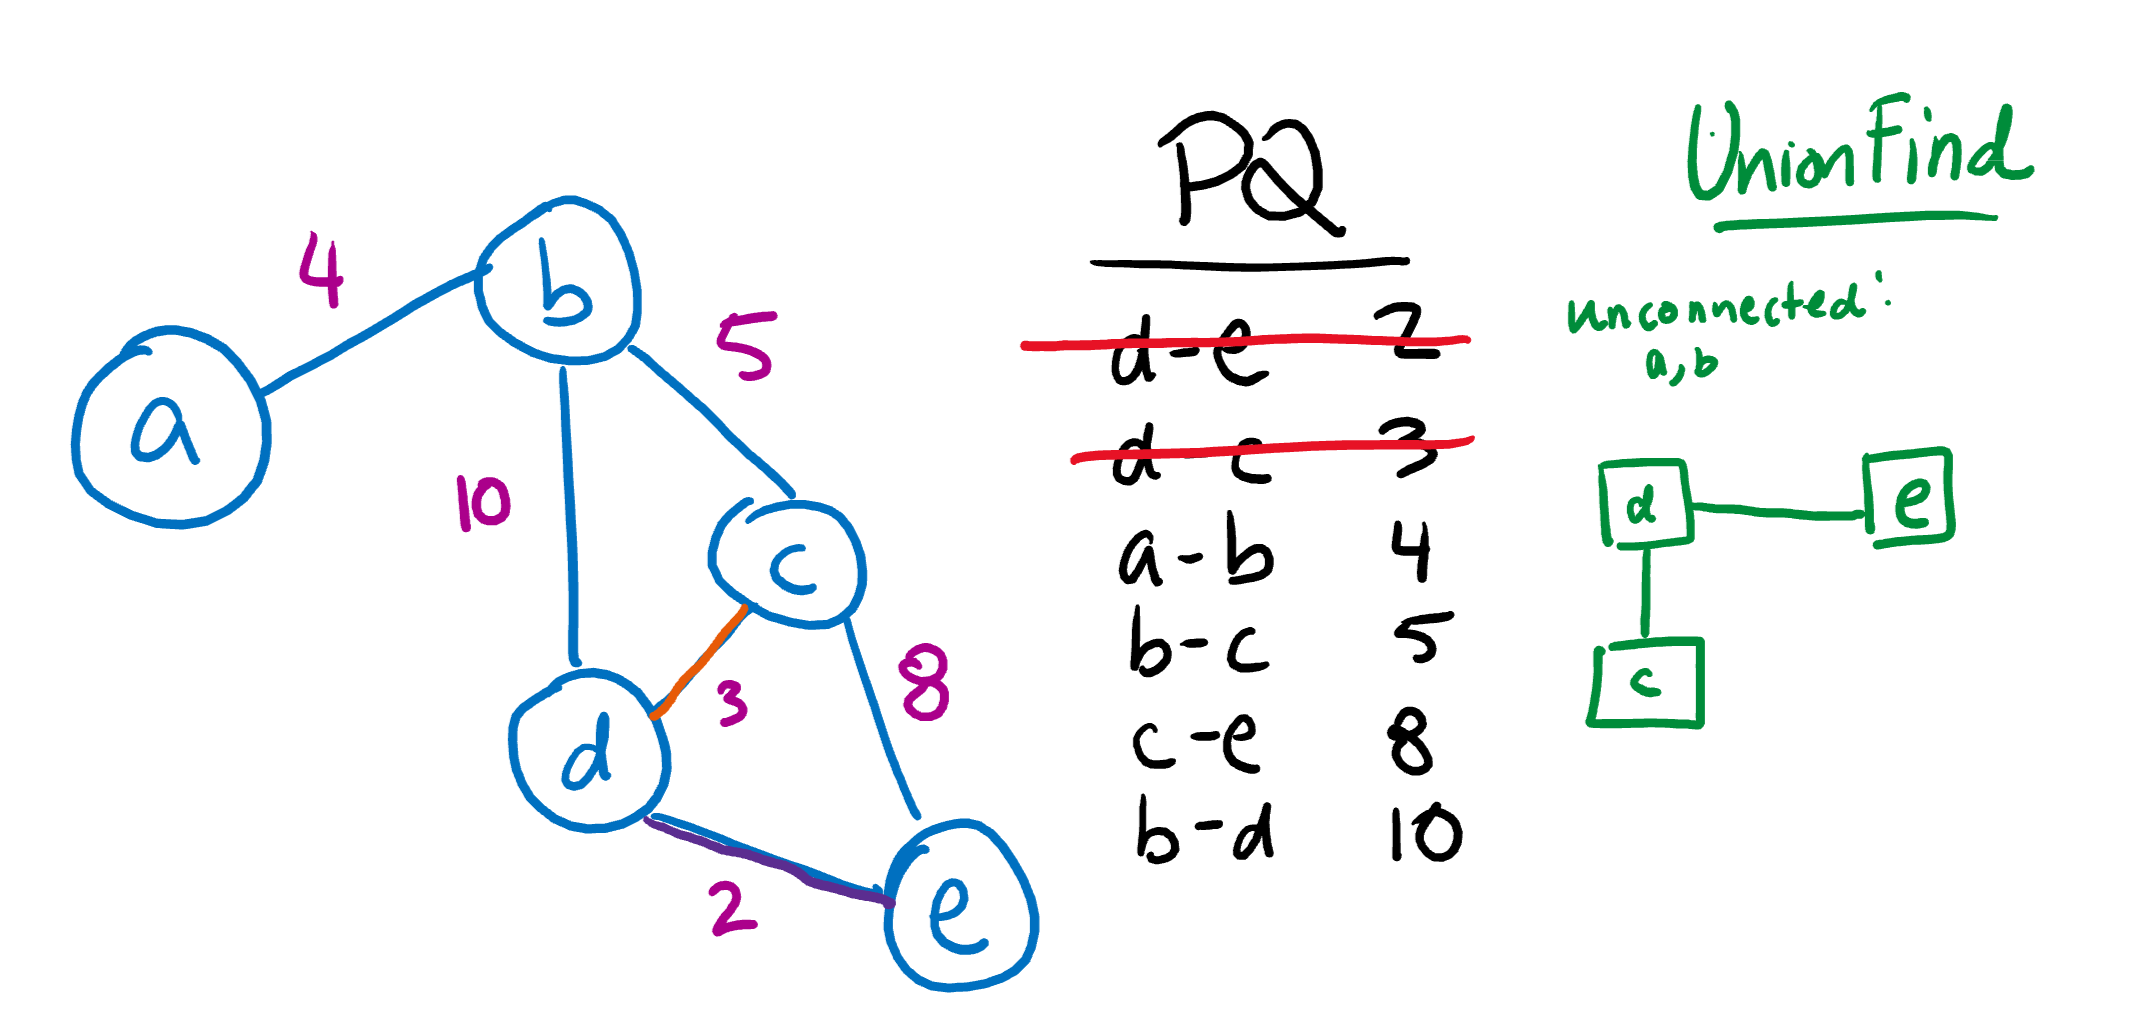 4
b
5
a
10
c
3
8
d
2
e
PQ
d-e 2
d c 3
a-b 4
b-c 5
c-e 8
b-d 10
UnionFind
unconnected:
a,b
d
e
c